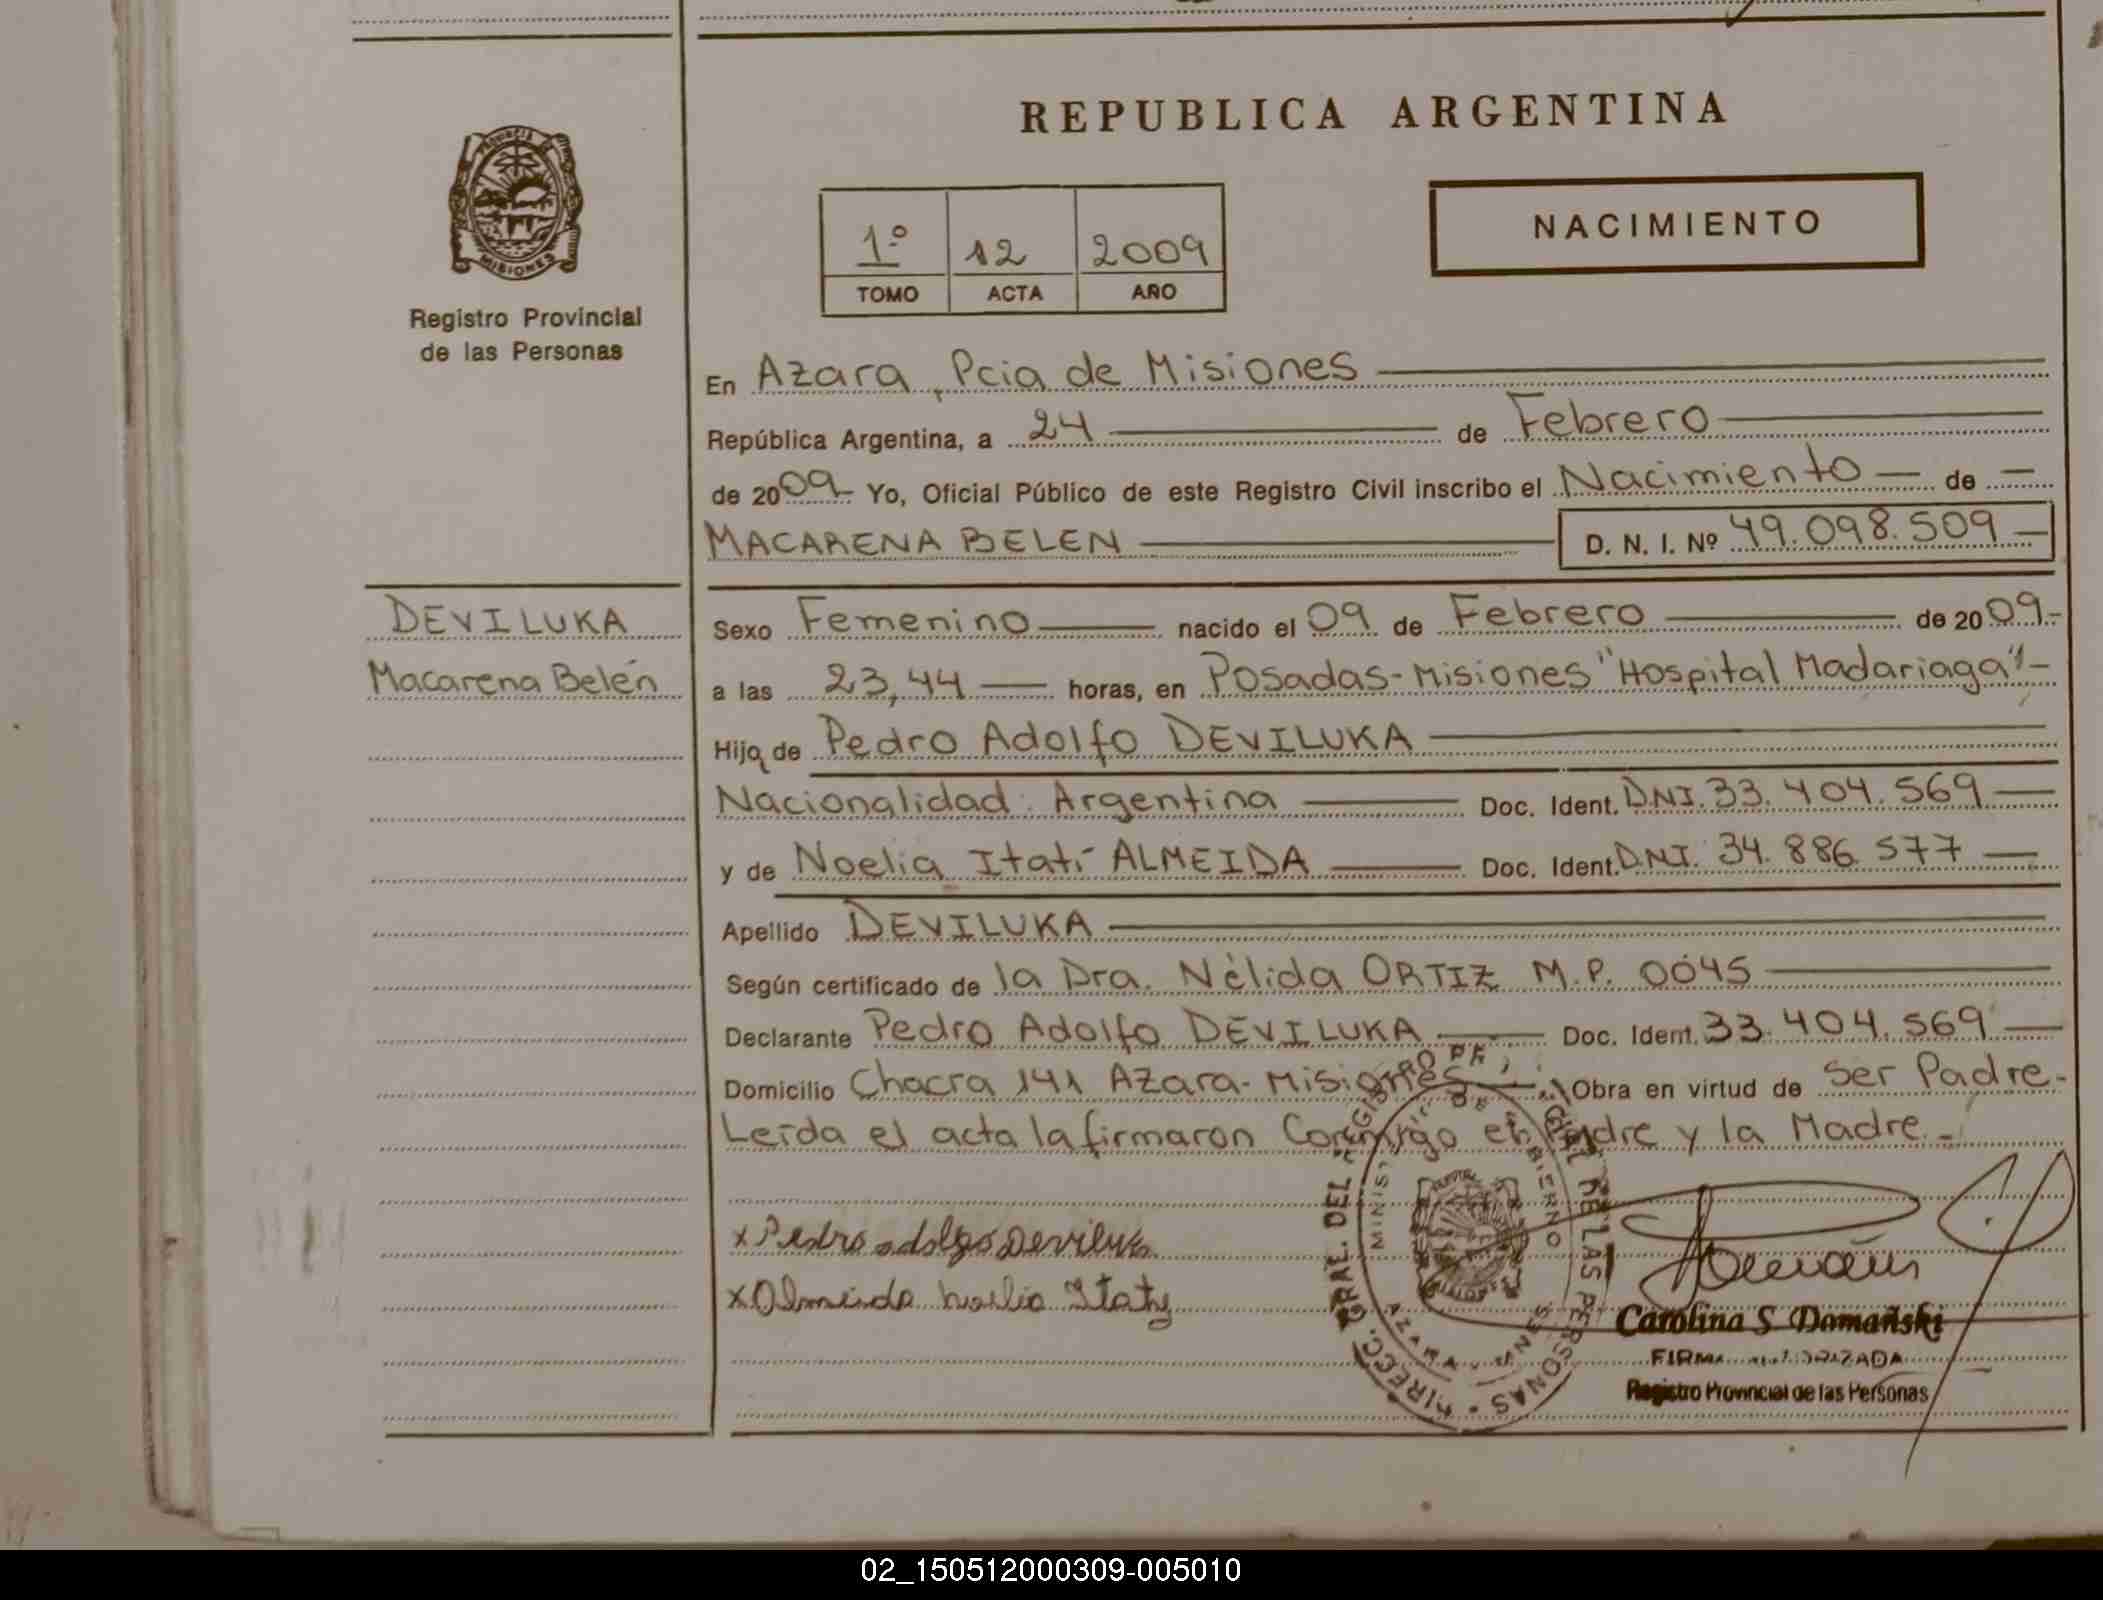 REPUBLICA ARGENTINA
PROVINCIA DE
MISIONES
Registro Provincial
de las Personas
1º 12 2009
TOMO ACTA AÑO
NACIMIENTO
En Azara, Pcia de Misiones
República Argentina, a 24 de Febrero
de 2009 Yo, Oficial Público de este Registro Civil inscribo el Nacimiento de
MACARENA BELEN D. N. I. Nº 49.098.509
DEVILUKA
Macarena Belén
Sexo Femenino nacido el 09 de Febrero de 2009.-
a las 23,44 horas, en Posadas-Misiones "Hospital Madariaga"-
Hija de Pedro Adolfo DEVILUKA
Nacionalidad: Argentina Doc. Ident. DNI. 33.404.569
y de Noelia Itatí ALMEIDA Doc. Ident. DNI. 34.886.577
Apellido DEVILUKA
Según certificado de la Dra. Nélida ORTIZ M.P. 0045
Declarante Pedro Adolfo DEVILUKA Doc. Ident. 33.404.569
Domicilio Chacra 141 Azara-Misiones Obra en virtud de Ser Padre.
Leída el acta la firmaron Conmigo el Padre y la Madre.-
x Pedro adolfo Deviluka
x Almeida Noelia Itaty
DIRECC. GRAL. DEL REGISTRO PROVINCIAL DE LAS PERSONAS
MINISTERIO DE GOBIERNO
AZARA
Carolina S. Domański
FIRMA AUTORIZADA
Registro Provincial de las Personas
02_150512000309-005010